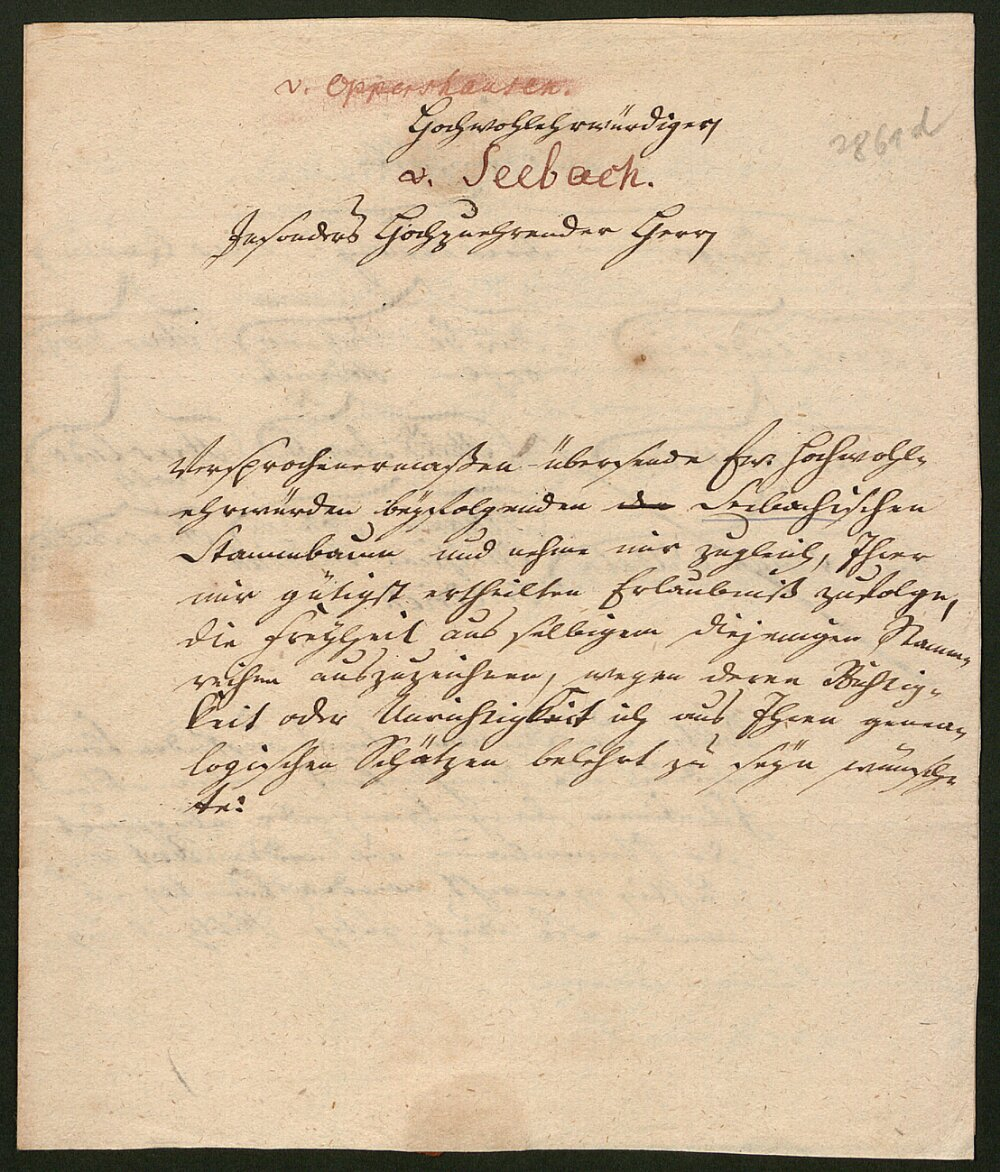 v. Oppershausen.
Hochwohlehrwürdiger
2869d
v. Seebach.
Insonders Hochzuehrender Herr
Versprochenermaßen übersende Ew. Hochwohl-
ehrwürden beÿfolgenden den Seebachischen
Stammbaum und nehme mir zugleich, Ihrer
mir gütigst ertheilten Erlaubniß zufolge,
die Freÿheit aus selbigem diejenigen Stamm-
reihen auszuzeichnen, wegen deren Richtig-
keit oder Unrichtigkeit ich aus Ihren genea-
logischen Schätzen belehrt zu seÿn wünsch-
te: